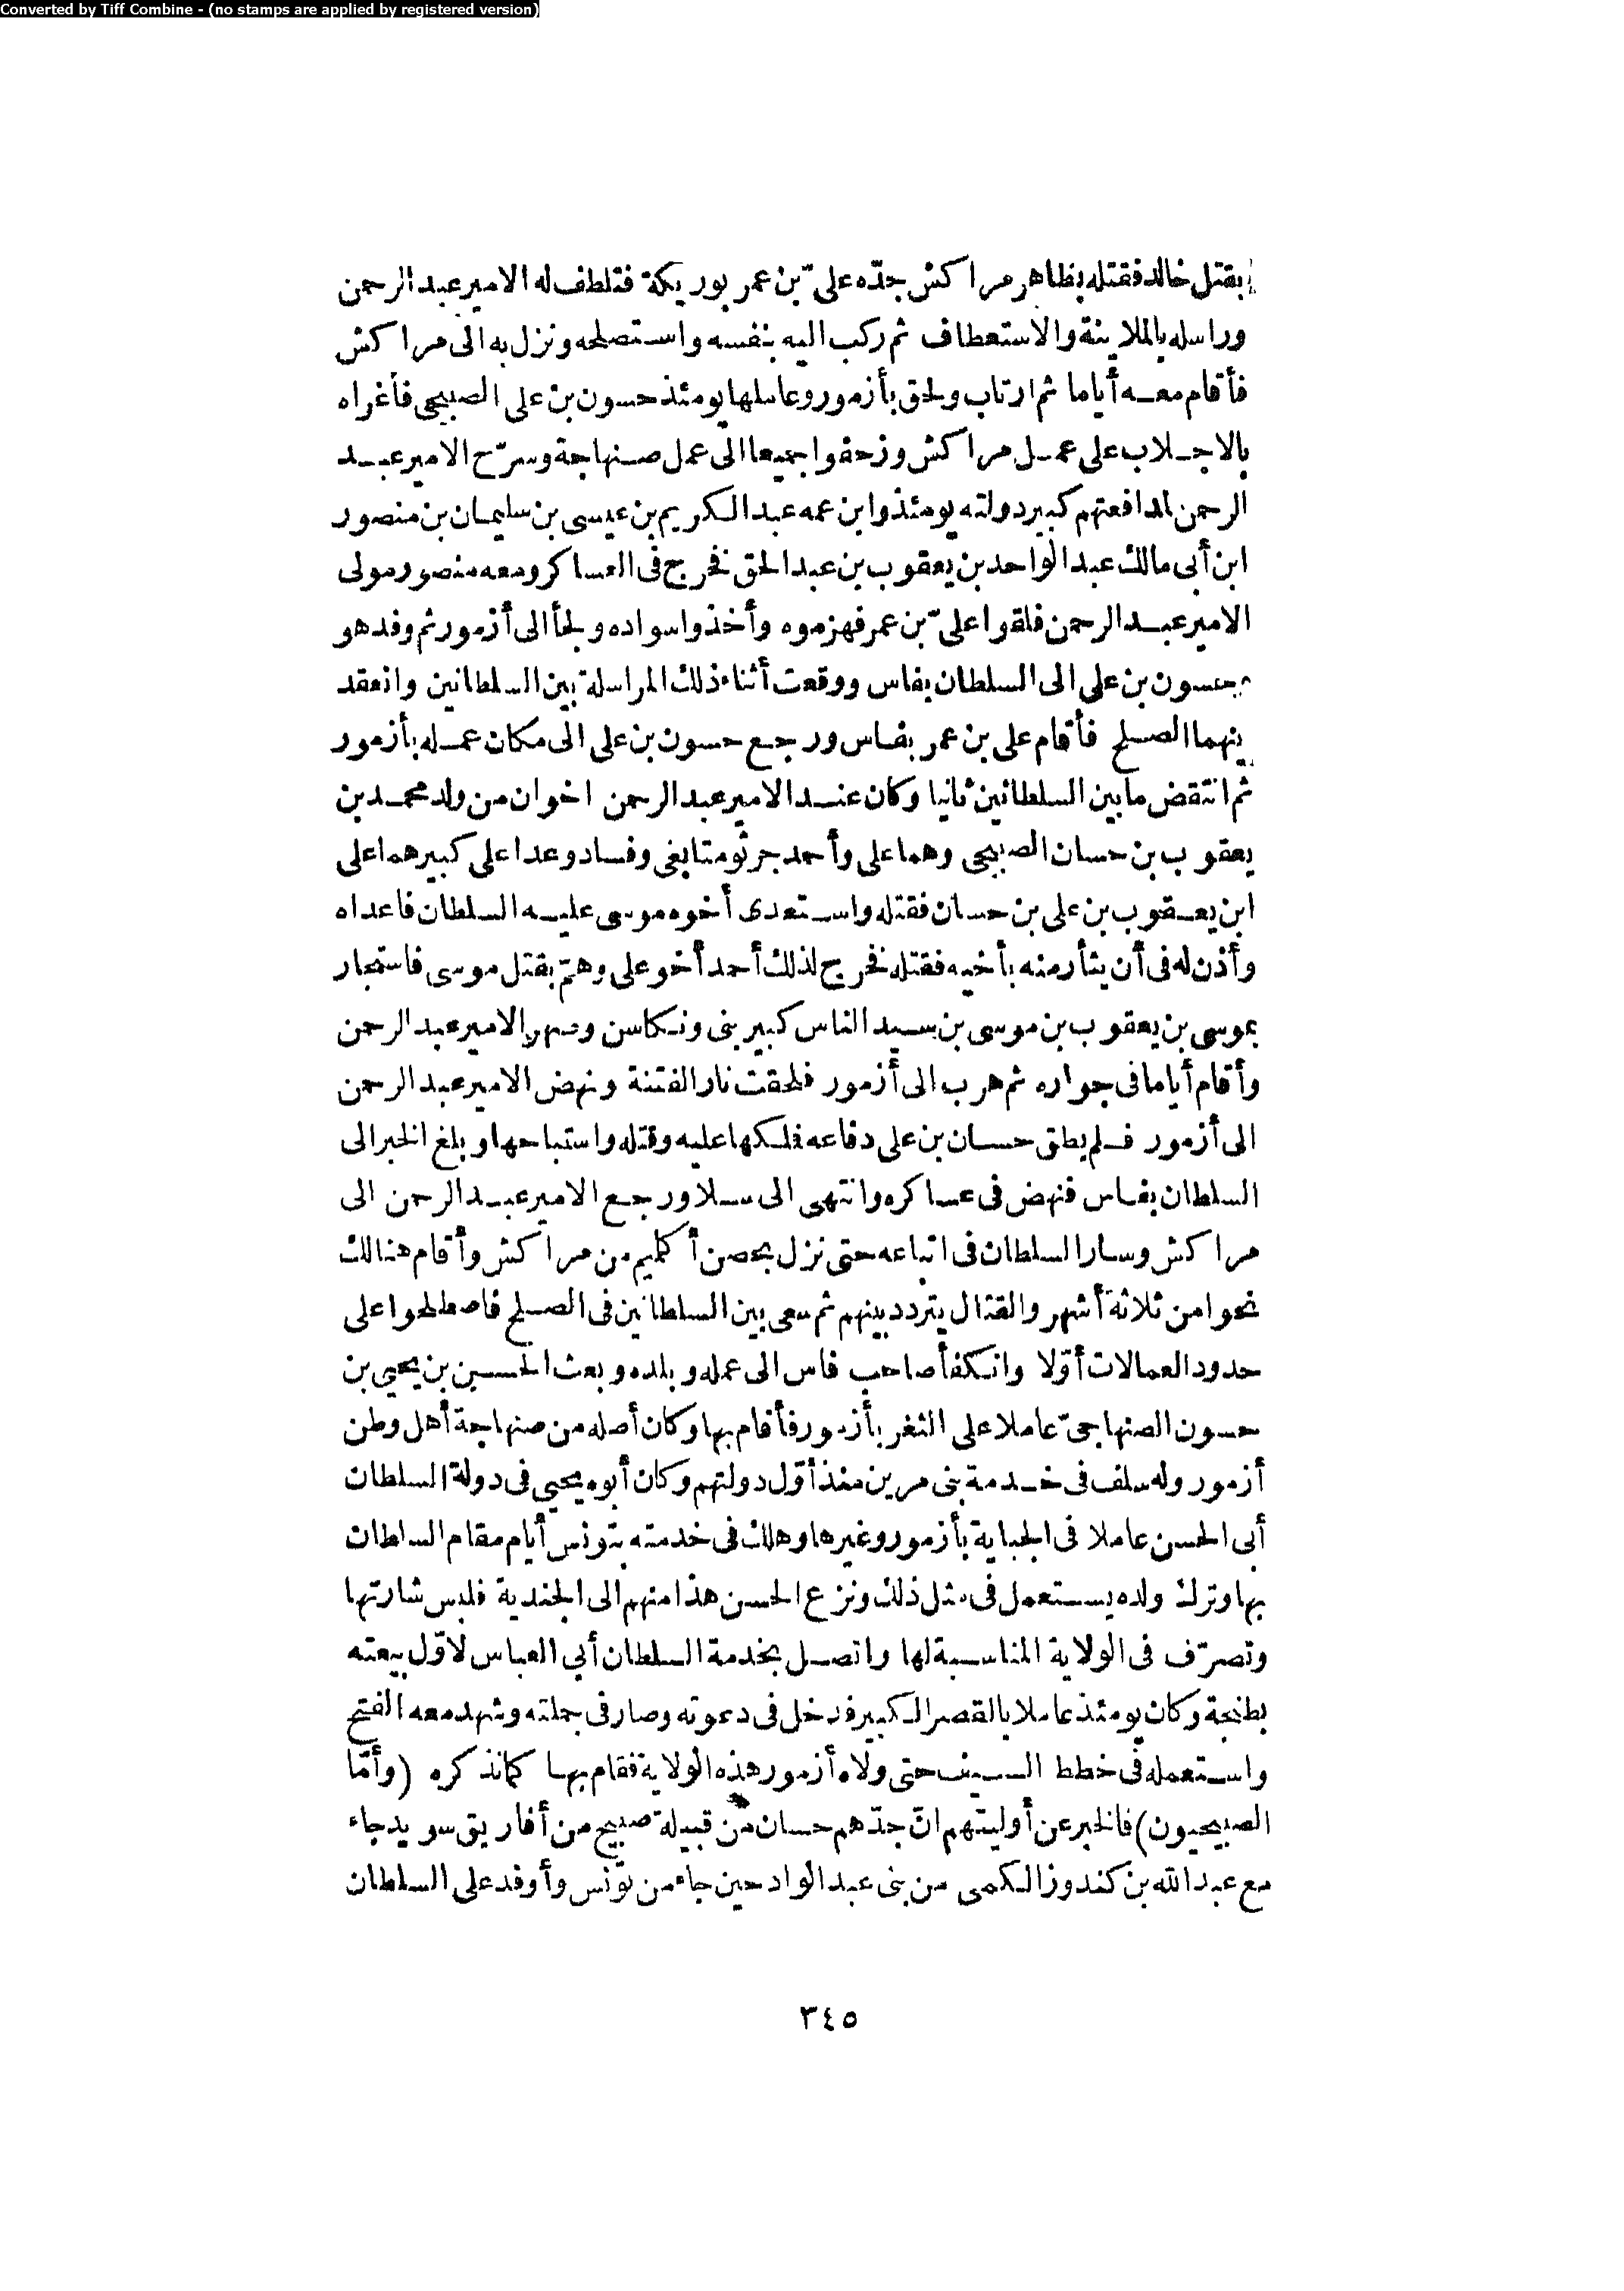 Converted by Tiff Combine - (no stamps are applied by registered version)
بقتل خالد فقتله بظاهر مراكش جدّه علىّ بن عمر بوريكة فتلطف له الامير عبد الرحمن
وراسله بالملاينة والاستعطاف ثم ركب اليه بنفسه واستصلحه ونزل به الى مراكش
فأقام معه أياما ثم ارتاب ولحق بأزمور وعاملها يومئذ حسون بن على الصبيحى فأغراه
بالاجلاب على عمل مراكش وزحفوا جميعا الى عمل صنهاجة وسرّح الامير عبد
الرحمن لمدافعتهم كبير دولته يومئذ وابن عمه عبد الكريم بن عيسى بن سليمان بن منصور
ابن أبى مالك عبد الواحد بن يعقوب بن عبد الحق فخرج فى العساكر ومعه منصور مولى
الامير عبد الرحمن فلقوا علىّ بن عمر فهزموه وأخذوا سواده ولجأ الى أزمور ثم وفد هو
وحسون بن على الى السلطان بفاس ووقعت أثناء ذلك المراسلة بين السلطانين وانعقد
بينهما الصلح فأقام على بن عمر بفاس ورجع حسون بن على الى مكان عمله بأزمور
ثم انتقض ما بين السلطانين ثانيا وكان عند الامير عبد الرحمن اخوان من ولد محمد بن
يعقوب بن حسان الصبيحى وهما على وأحمد جرثومتا بغى وفساد وعدا على كبيرهما على
ابن يعقوب بن على بن حسان فقتله واستعدى أخوه موسى عليه السلطان فاعداه
وأذن له فى أن يثأر منه بأخيه فقتله فخرج لذلك أحمد أخو على وهمّ بقتل موسى فاستجار
موسى بن يعقوب بن موسى بن سيد الناس كبير بنى ونكاسن وصهر الامير عبد الرحمن
وأقام أياما فى جواره ثم هرب الى أزمور فلحقت نار الفتنة ونهض الامير عبد الرحمن
الى أزمور فلم يطق حسان بن على دفاعه فملكها عليه وقتله واستباحها وبلغ الخبر الى
السلطان بفاس فنهض فى عساكره وانتهى الى سلا ورجع الامير عبد الرحمن الى
مراكش وسار السلطان فى اتباعه حتى نزل بحصن أكليم من مراكش وأقام هنالك
نحوا من ثلاثة أشهر والقتال يتردد بينهم ثم سعى بين السلطانين فى الصلح فاصطلحوا على
حدود العمالات أوّلا وانكفأ صاحب فاس الى عمله وبلده وبعث الحسين بن يحيى بن
حسون الصنهاجىّ عاملا على الثغر بأزمور فأقام بها وكان أصله من صنهاجة أهل وطن
أزمور وله سلف فى خدمة بنى مرين منذ أوّل دولتهم وكان أبوه يحيى فى دولة السلطان
أبى الحسن عاملا فى الجباية بأزمور وغيرها وهلك فى خدمته بتونس أيام مقام السلطان
بها وترك ولده يستعمل فى مثل ذلك ونزع الحسن هذا منهم الى الجندية فلبس شارتها
وتصرّف فى الولاية المناسبة لها واتصل بخدمة السلطان أبى العباس لاوّل بيعته
بطنجة وكان يومئذ عاملا بالقصر الكبير فدخل فى دعوته وصار فى جملته وشهد معه الفتح
واستعمله فى خطط السيف حتى ولاه أزمور هذه الولاية فقام بها كما نذكره (وأمّا
الصبيحيون) فالخبر عن أوليتهم انّ جدّهم حسان من قبيلة صبيح من أفاريق سويد جاء
مع عبد الله بن كندوز الكمى من بنى عبد الواد حين جاء من تونس وأوفد على السلطان
٣٤٥